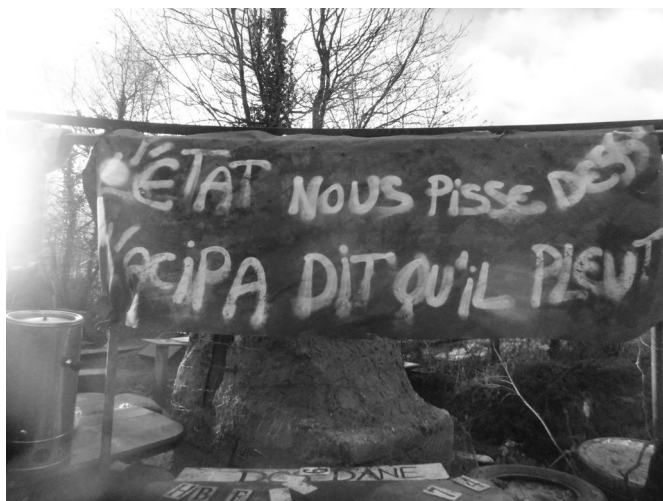 L'ÉTAT NOUS PISSE DESS
L'ACIPA DIT QU'IL PLEUT
DANE